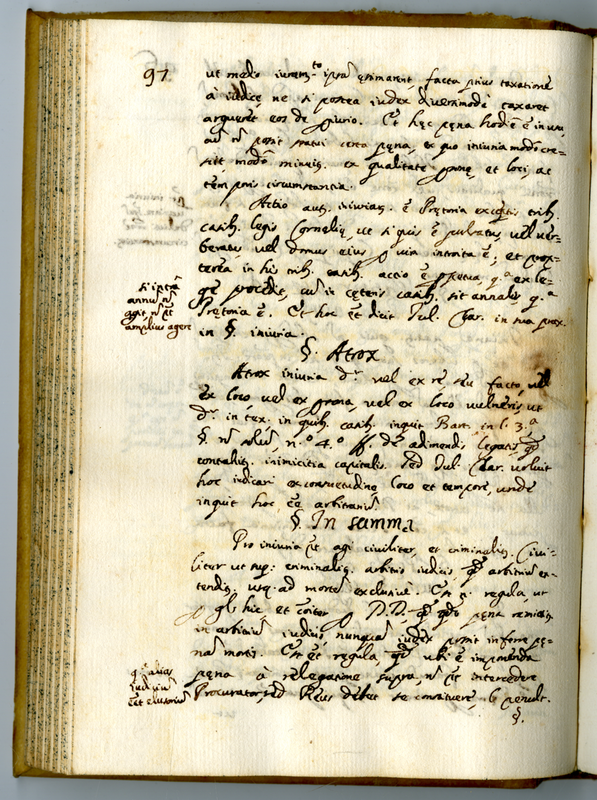 97
ut medo iuram.to ipsa ęstimarent, facta prius taxatione
à iudicę, ne si postea iudex diversimodè taxaret
argueret eos de piurio. Et hęc pęna hodiè ē in usu,
statui certa pęna, eo quo iniuria modò cre=
scit modò minuit. ex qualitate psonę, et loci, ac
tēmporis circumstantia.
Actio aut. iniuriar. ē Prętoria exceptis trib.
casib. legis Cornelię, ut si quis ē pulsatus, vel ver=
beratus vel domus eius p vim introita ē; et prop=
terea in his trib. casib. actio ē ppetua, q.a ex le=
gę procedit, cum in cęteris casib. sit annalis q.a
Prętoria ē. Et hoc et dicit Iul. Clar. in sua prax.
in §. iniuria.
si intra
annū nō
agit, nō pt
amplius agere
§. Atrox
Atrox iniuria dr vel ex re, seu facto, vel
ex loco vel ex psona, vel ex loco vulneris, ut
dr in tex. in quib. casib. inquit Bart. in l. 3.a
§. nō solū, n.o 4.o ff de adimendis legatis qd
contrahit. inimicitia capitalis. sed Iul. Clar. voluit
hoc iudicari ex consuetudine, loco et tempore, unde
inquit hoc ēē arbitrariū.
§. In summa
Pro iniuria pt agi civiliter, et criminalit. Civi=
liter ut sup: criminalit. arbitrio iudicis, qd arbitriū ex=
tendit. usq. ad mortē exclusivè. Est n. regula, ut
p gl. hic et coiter p D.D. qd qdo pęna remittit.
in arbitriū iudicis, nunquā iudex possit inferre pę=
nā mortis. Est et regula qd ubi ē imponenda
pęna à relegatione supra, nō pt intercedere
Procurator, sed Reus debet se constituere, l. penult.
§.
q.a alias
iudiciū
eēt elusoriū